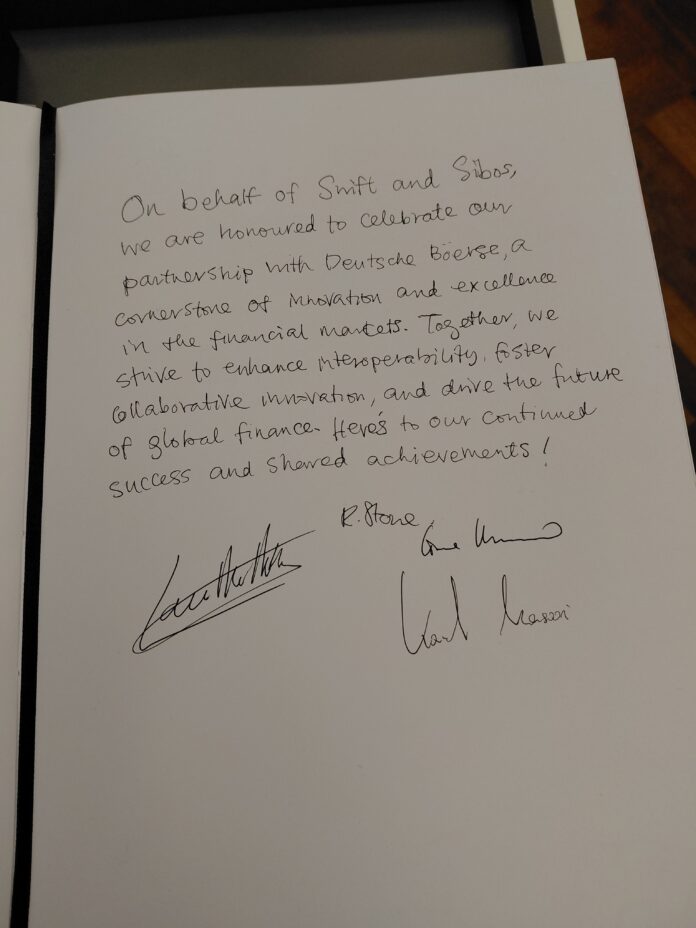 On behalf of Swift and Sibos,
we are honoured to celebrate our
partnership with Deutsche Böerse, a
cornerstone of innovation and excellence
in the financial markets. Together, we
strive to enhance interoperability, foster
collaborative innovation, and drive the future
of global finance. Here's to our continued
success and shared achievements!
R. Stone